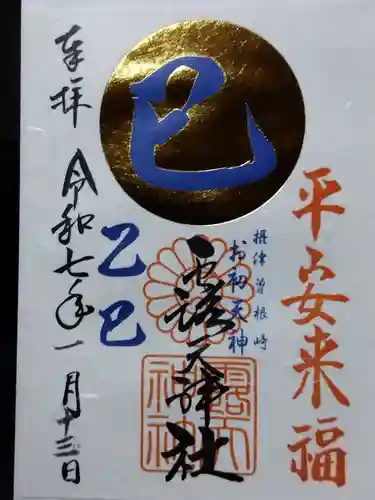 平安来福
摂津曽根崎
お初天神
巳
露天神社
乙巳
奉拝
令和七年一月十三日